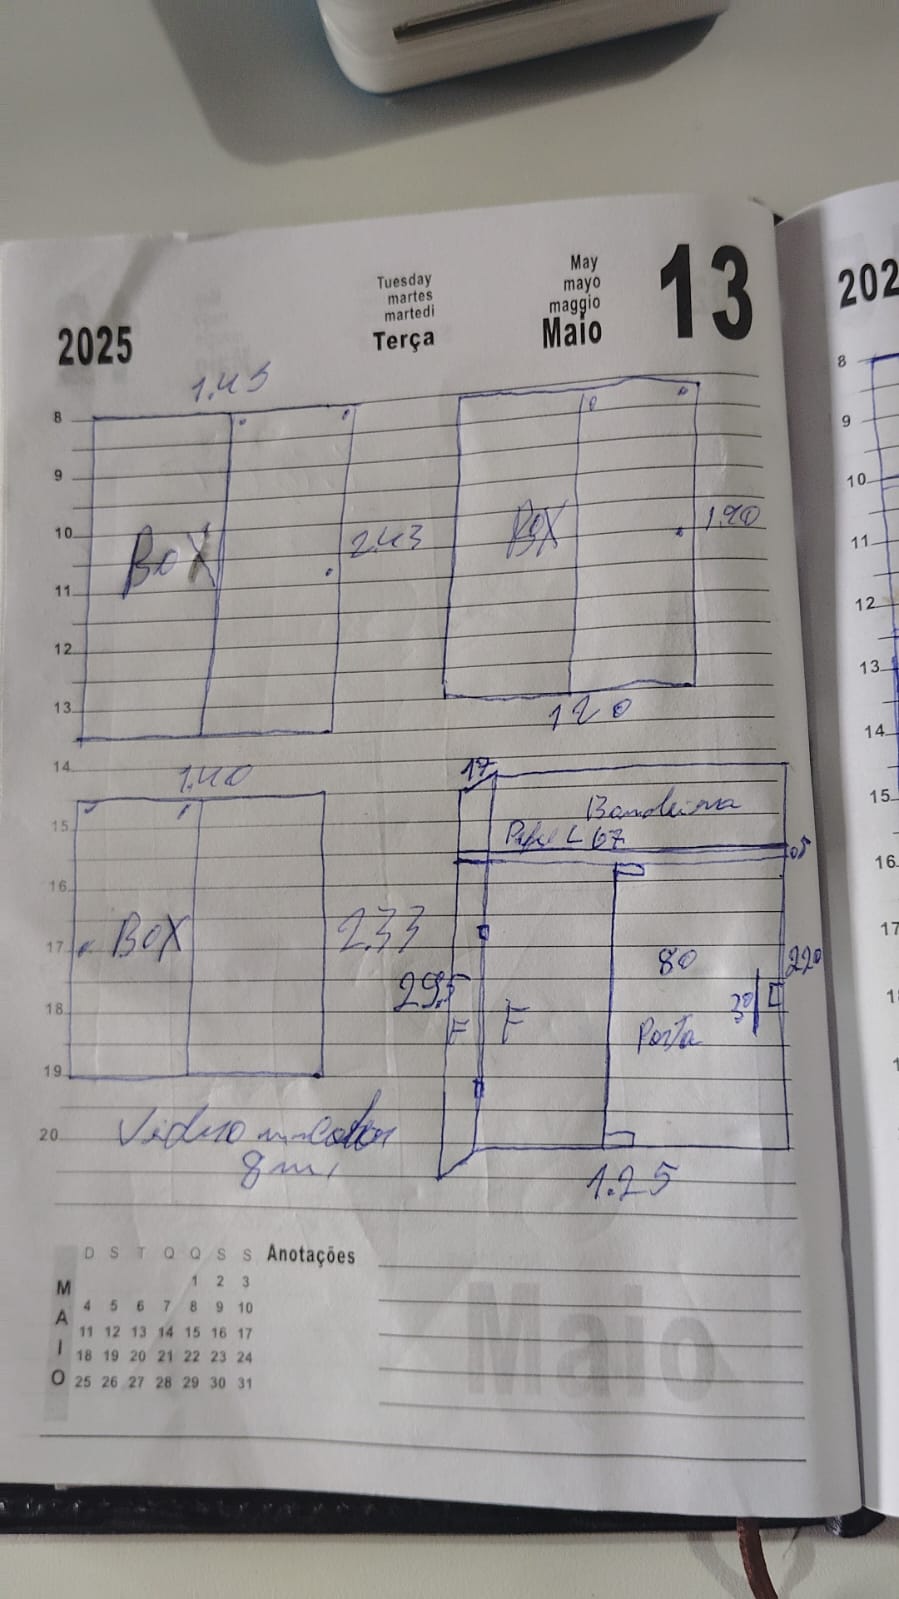 Tuesday
martes
martedi
Terça
May
mayo
maggio
Maio
13
2025
1.45
8
9
10
11
12
13
BOX
2.43
BOX
1.90
120
14
15
16
17
18
19
20
1.40
BOX
2.33
17
Bandeira
Perfil L 67
05
80
220
295
F
F
30
Porta
1.25
Vidro incolor
8m,
MAIO
D S T Q Q S S
1 2 3
4 5 6 7 8 9 10
11 12 13 14 15 16 17
18 19 20 21 22 23 24
25 26 27 28 29 30 31
Anotações
Maio
202
8
9
10
11
12
13
14
15
16
17